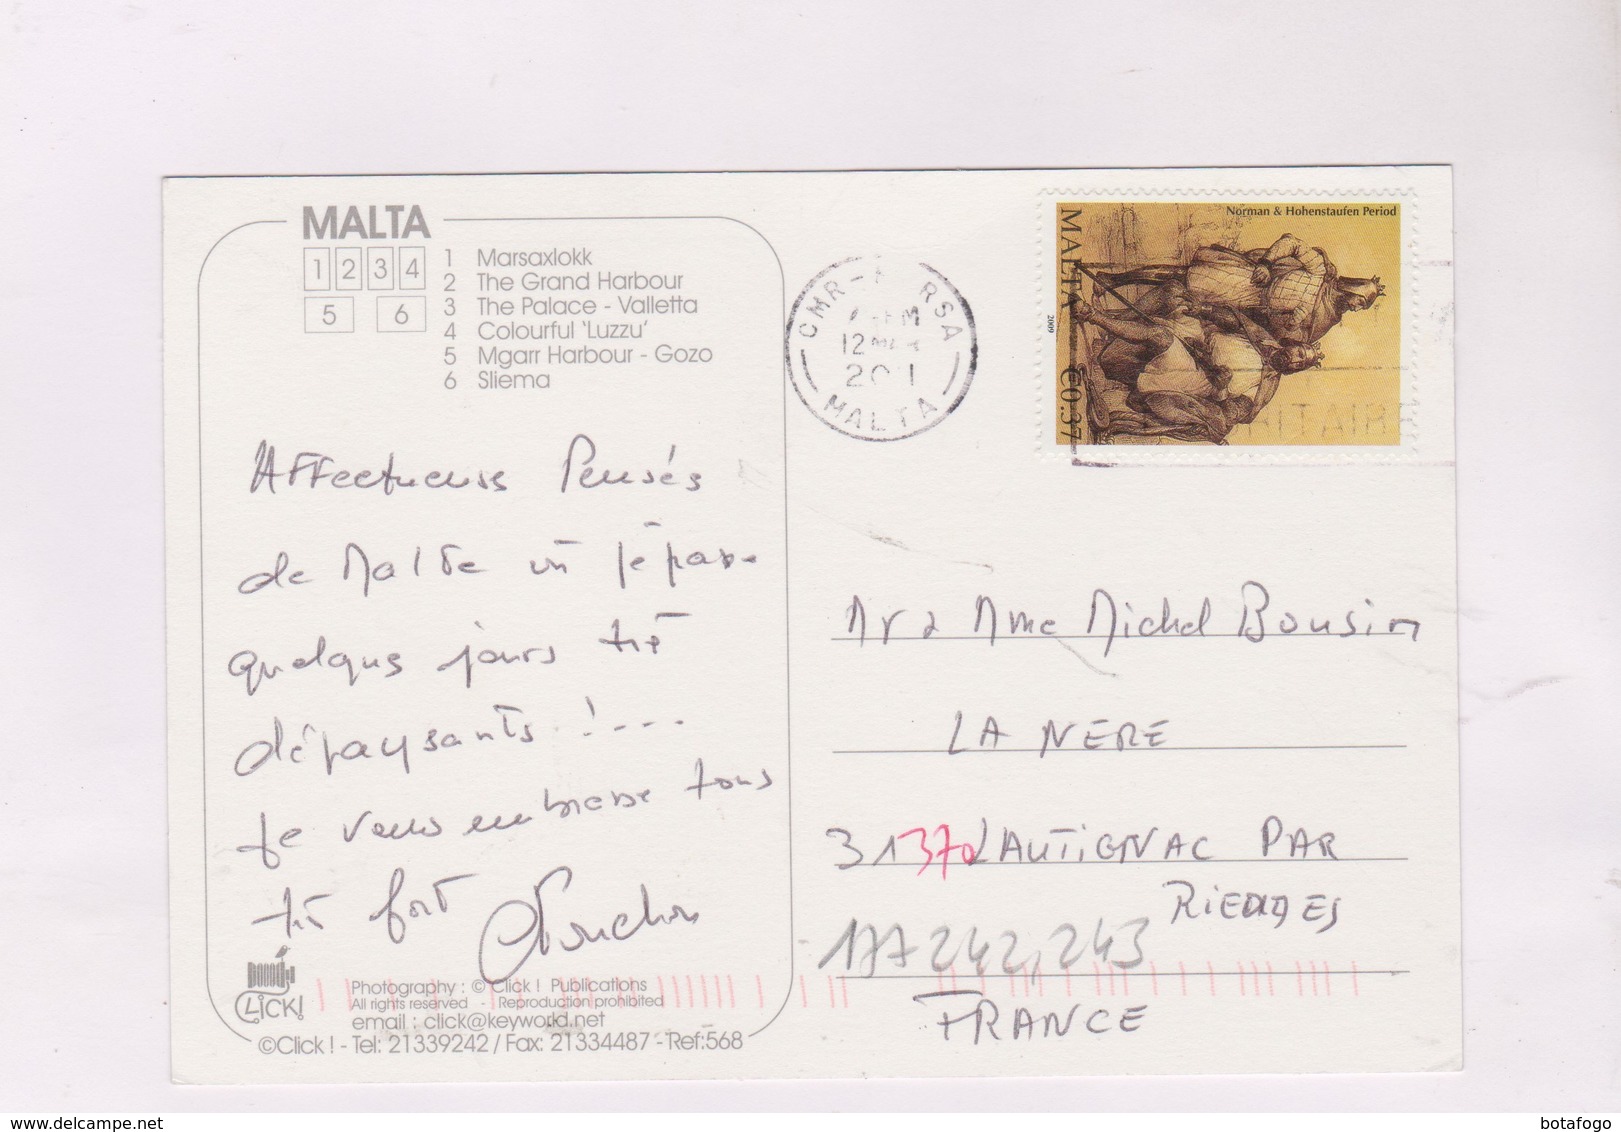 MALTA
1 2 3 4
5 6
1 Marsaxlokk
2 The Grand Harbour
3 The Palace - Valletta
4 Colourful 'Luzzu'
5 Mgarr Harbour - Gozo
6 Sliema
Affectueuses Pensés
de Malte où je passe
quelques jours très
dépaysants !...
Je vous embrasse tous
très fort
CLiCK!
Photography : © Click ! Publications
All rights reserved - Reproduction prohibited
email : click@keyworld.net
©Click ! - Tel: 21339242 / Fax: 21334487 - Ref:568
RSA
12
MALTA
Norman & Hohenstaufen Period
MALTA
2009
€0.37
Mr & Mme Michel Bousin
LA NERE
31370 LAUTIGNAC PAR
177242,243
FRANCE
botafogo